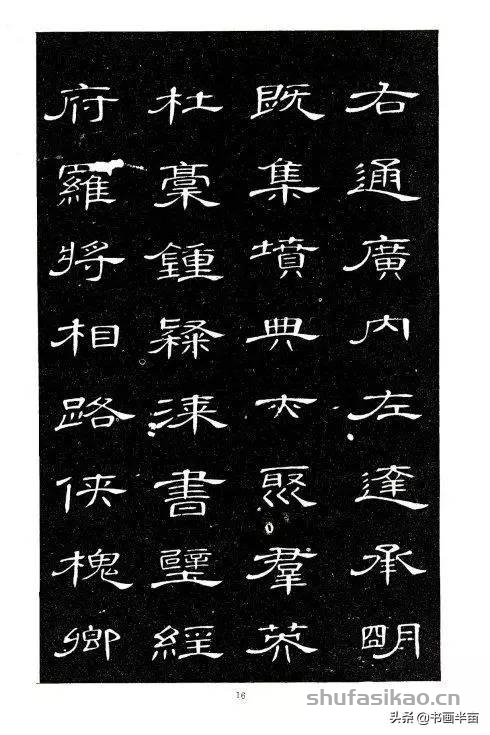 右通廣內左達承明
既集墳典亦聚羣英
杜稾鍾隸漆書壁經
府羅將相路俠槐卿
16
shufasikao.cn
头条 @书画半亩